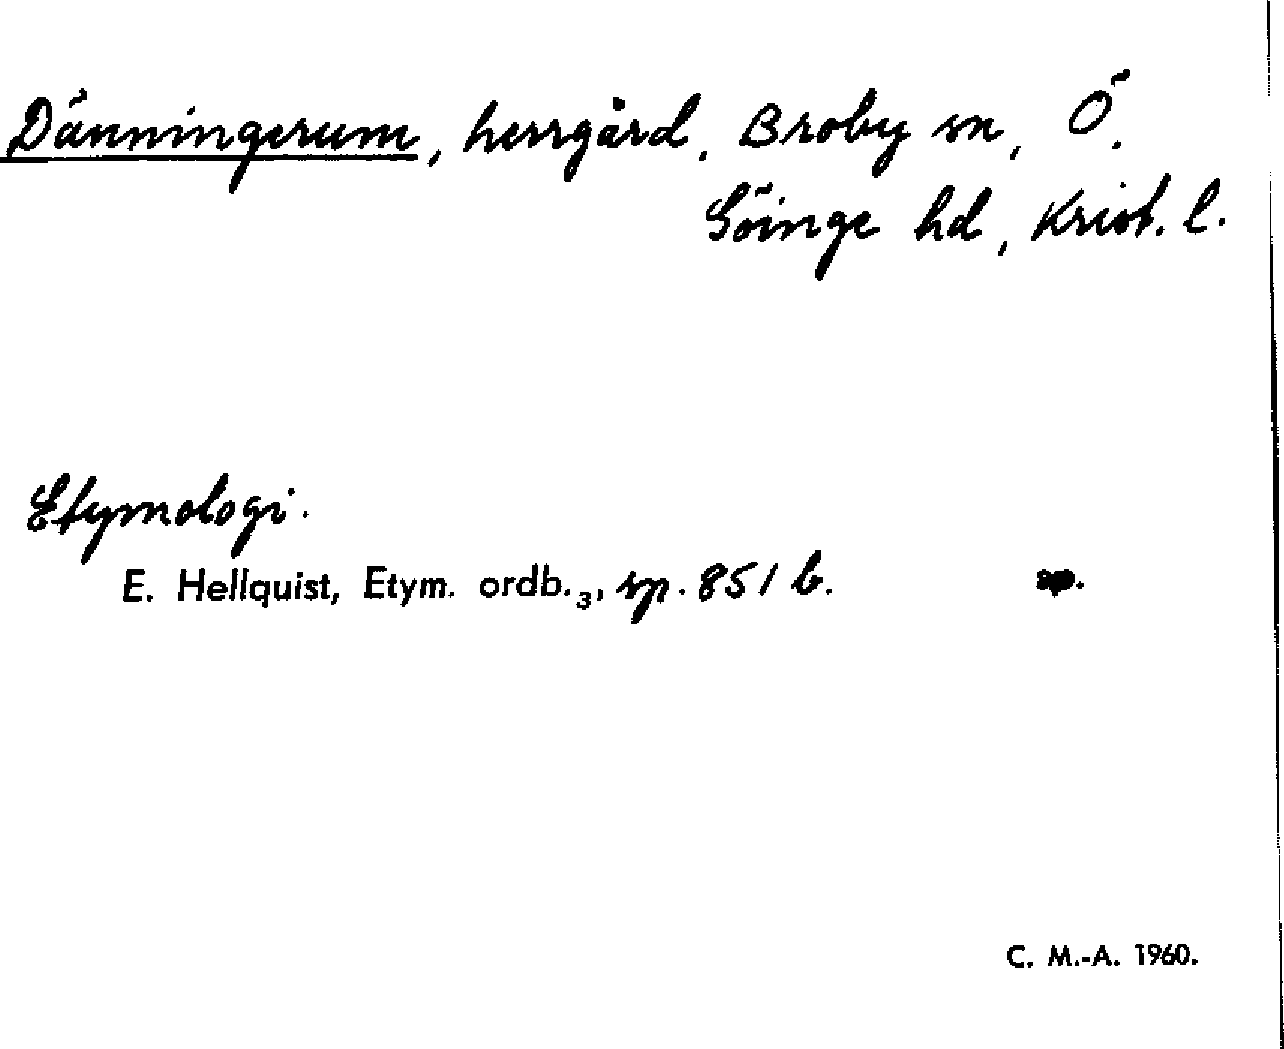 Dänningerum, herrgård, Broby sn, Ö.
Göinge hd, Krist. l.
Etymologi.
E. Hellquist, Etym. ordb.₃, sp. 851 b.
C. M.-A. 1960.